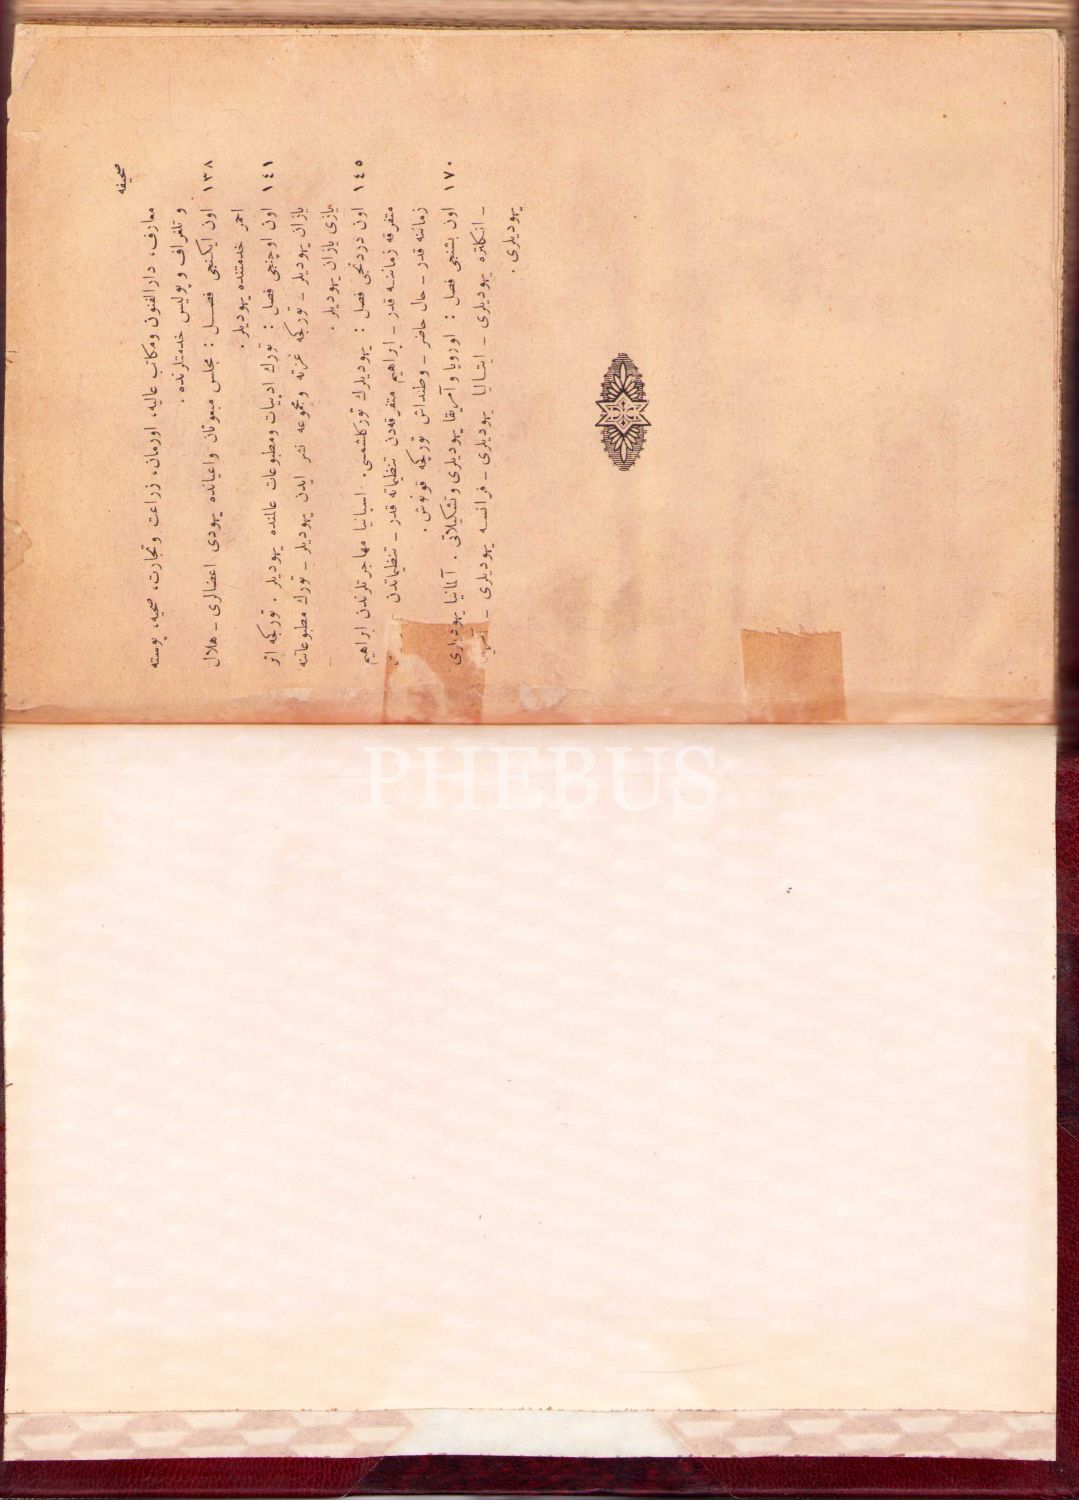 صحيفه
معارف، دارالفنون ومكاتب عاليه، اورمان، زراعت وتجارت، صحيه، پوسته
وتلغراف و پوليس خدمتلرنده .
١٣٨ اون ايكنجى فصل : مجلس مبعوثان واعيانده يهودى اعضالرى ـ هلال
احمر خدمتنده يهوديلر .
١٤١ اون اوچنجى فصل : تورك ادبيات ومطبوعات عالمنده يهوديلر . توركجه اثر
يازان يهوديلر ـ توركجه غزته ومجموعه نشر ايدن يهوديلر ـ تورك مطبوعاتنه
يازى يازان يهوديلر .
١٤٥ اون دردنجى فصل : يهوديلرك توركلشمسى . اسپانيا مهاجرتلرندن ابراهيم
متفرقه زماننه قدر ـ ابراهيم متفرقه‌دن تنظيماته قدر ـ تنظيماتدن
زماننه قدر ـ حال حاضر ـ وطنداش توركجه قونوش .
١٧٠ اون بشنجى فصل : اوروپا وآمريقا يهوديلرى وتشكيلاتى . آلمانيا يهوديلرى
ـ انكلتره يهوديلرى ـ ايتاليا يهوديلرى ـ فرانسه يهوديلرى ـ
يهوديلرى .
PHEBUS